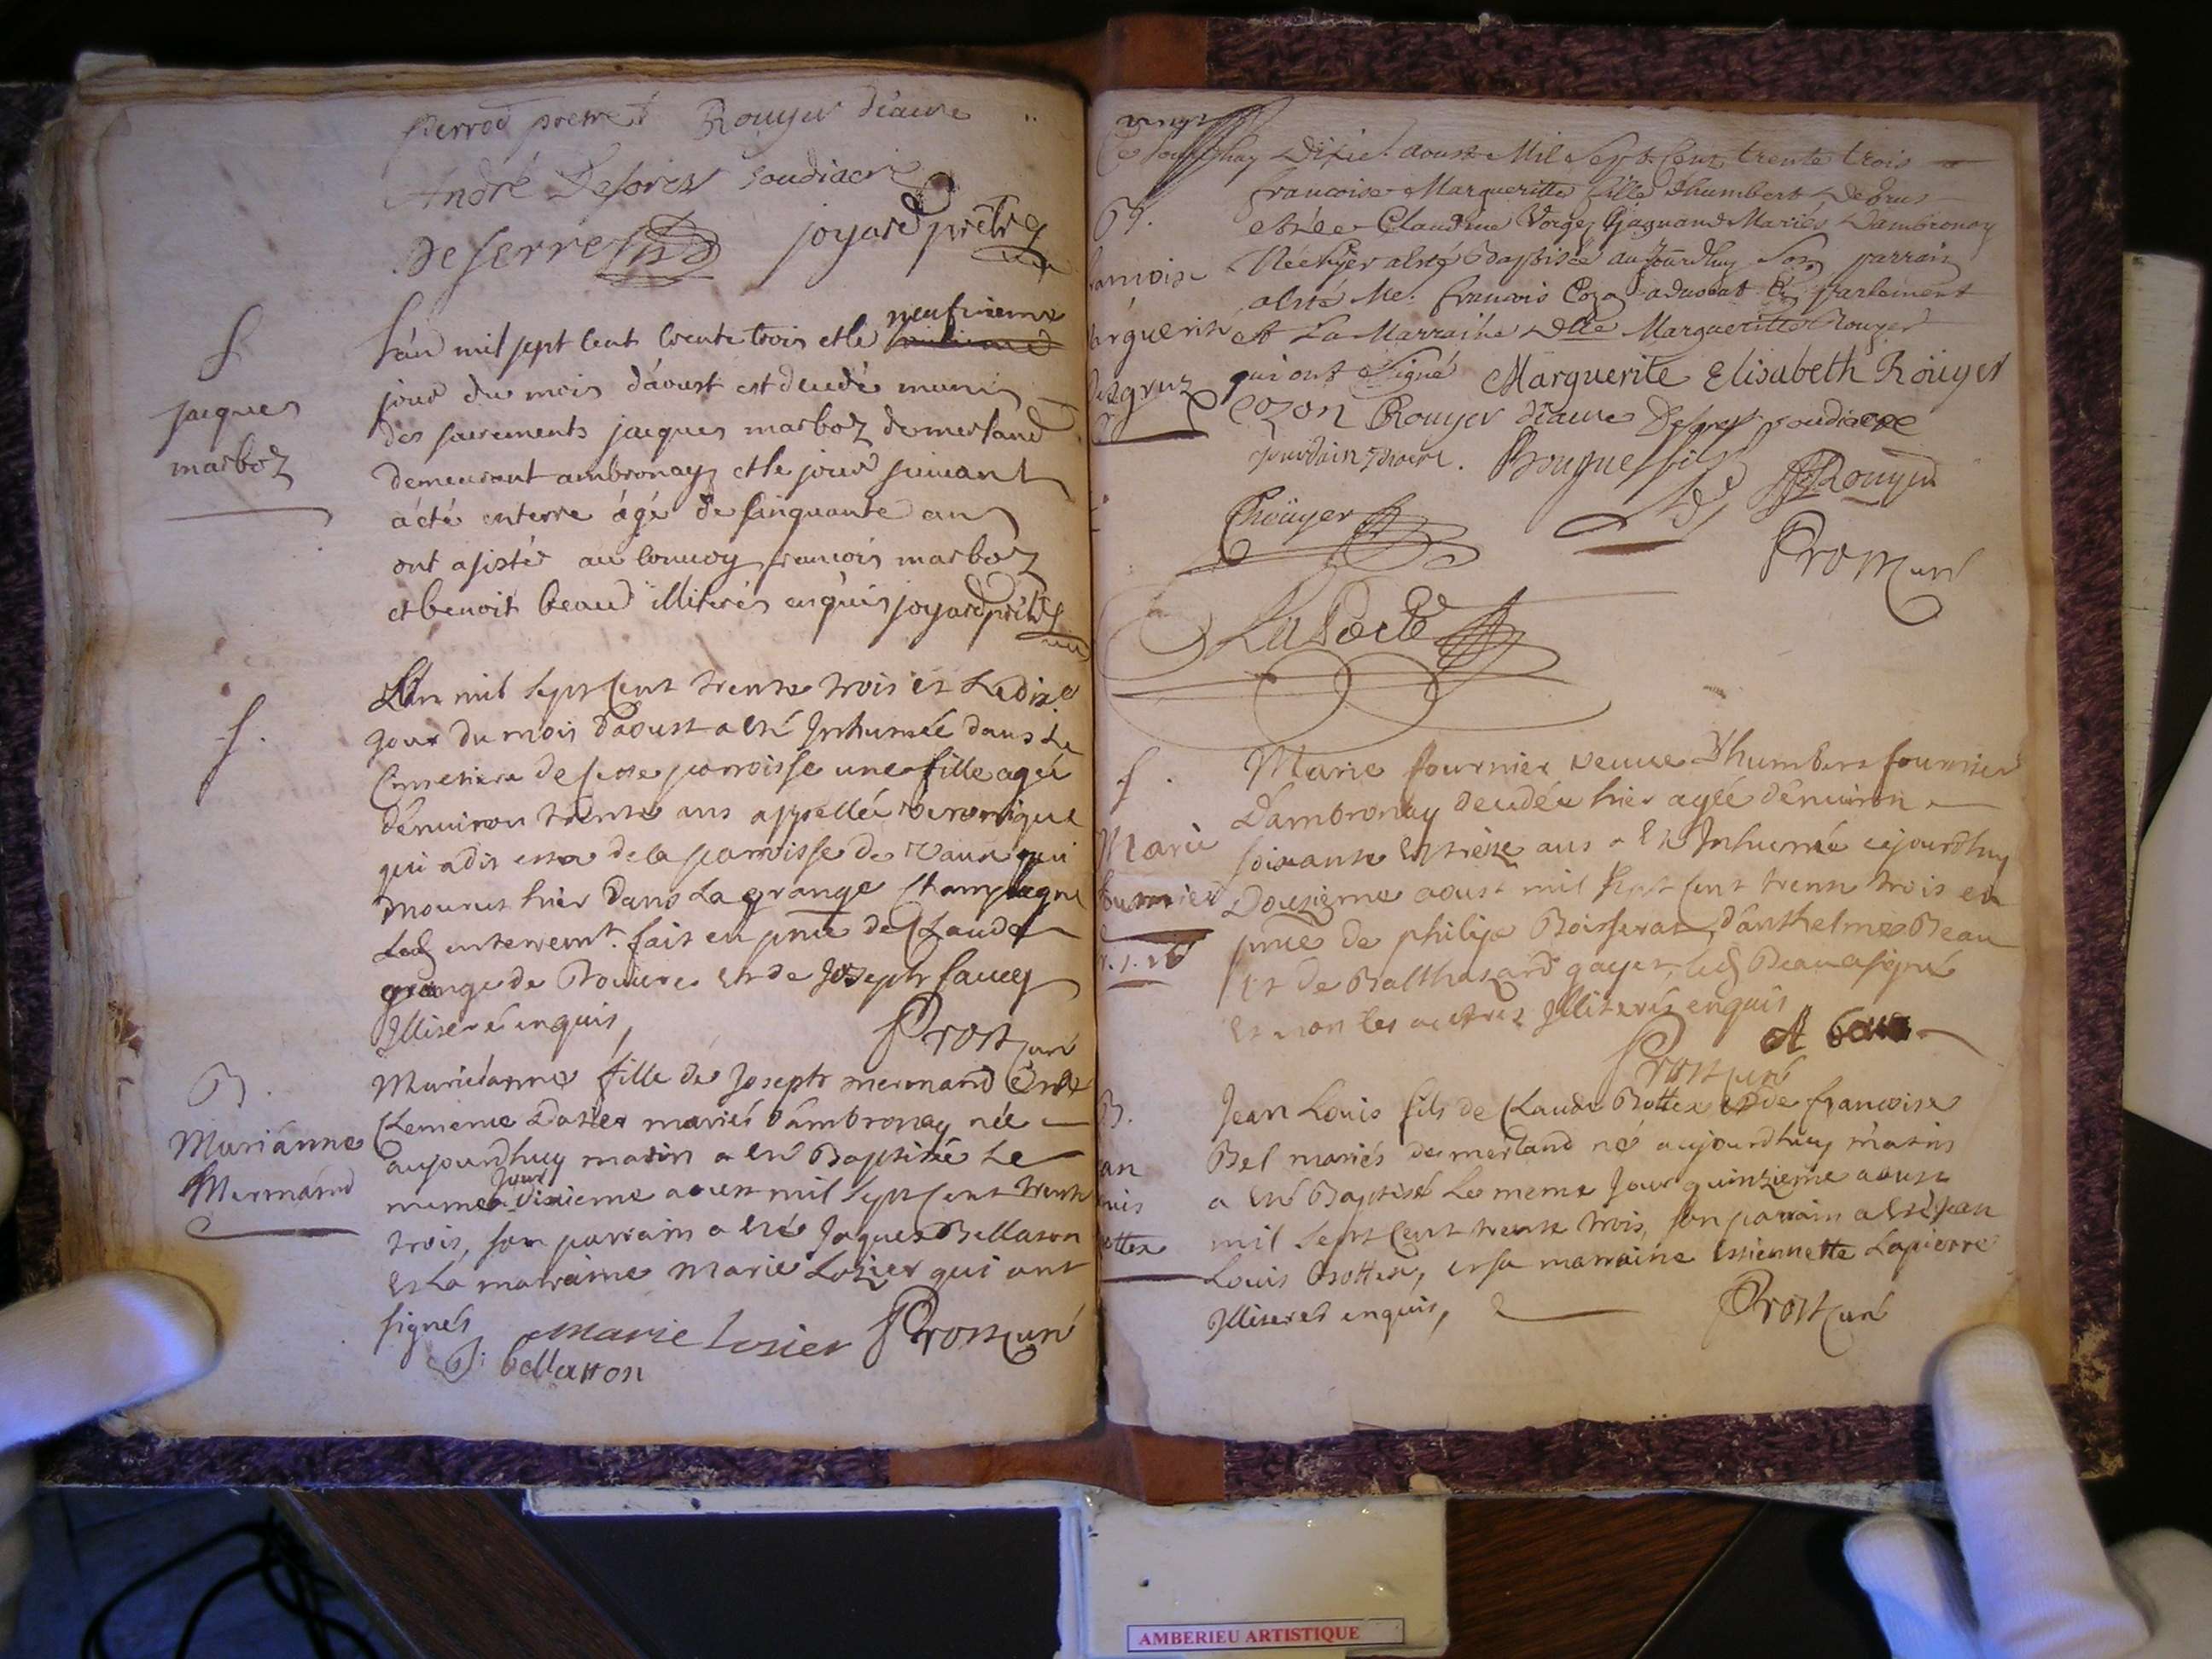 perrod Rouyer diacre
André Desores soudiacre
Deserre joyard prêtre
neufvieme
L'an mil sept cent trente trois et le
f
jour du mois d'aoust est decedé muni
jacques
des sacrements jacques marboz de merland
marboz
demeurant ambronay et le jour suivant
a été enterre agé de sinquante ans
ont asistés au convoy francois marboz
et benoit beaud illiterés enquis joyard prêtre
L'an mil sept cent trente trois et le dix.e
f.
jour du mois d'aoust a esté Inhumée dans le
Cimetiere de cette parroisse une fille agée
d'environ trente ans appellée veronique
qui a dit estre de la parroisse de Vaux qui
mourut hier dans la grange Champagne
Led enterremt. fait en pnce de Claude
grange de Et de Joseph
Illiteré enquis, Prost curé
B.
Marieanne fille de Joseph mermand Et de
Clemence mariés d'ambronay née
Mariánne
aujourdhuy matin a esté Baptisée le
Mermánd
jour
meme dixieme aoust mil sept cent trente
trois, son parrain a esté Jaques Bellaton
Et La marraine Marie Lozier qui ont
signés marie losier Prost curé
J: bellatton
aoust Mil Sept Cent trente trois
francoise Margueritte fille d'humbert Degrus
B.
et de Claudine Mariés Dambronay
francoise
Née hyer a esté Baptisée aujourdhuy Son parrain
a esté Me. francois Cozon advocat En parlement
marguerite
et La Marraine Dlle Margueritte Rouyer
Degruz
qui ont Signé Marguerite Elisabeth Roüyer
Cozon Rouyer diacre Desores soudiacre
fils Rouyer
Roüyer
Prost curé
LaPorte
f.
Marie fournier veuve D'humbert fournier
D'ambronay decedée hier agée d'environ
Marie
soixante Et treize ans a Esté Inhumée cejourdhuy
fournier
Douzieme aoust mil sept cent trente trois en
pnce de philipe Boisserat, d'anthelme Beau
Et de Balthazard gayet, led Beau a signé
Et non les autres Illiterés enquis
A beau
Prost curé
B.
Jean Louis fils de Claude Bottex Et de francoise
Bel mariés de merland né aujourdhuy matin
a esté Baptisé Le meme Jour quinzieme aoust
mil sept cent trente trois, son parrain a esté jean
Louis Bottex, et sa marraine Estiennette Lapierre
Illiterés enquis, Prost curé
AMBERIEU ARTISTIQUE